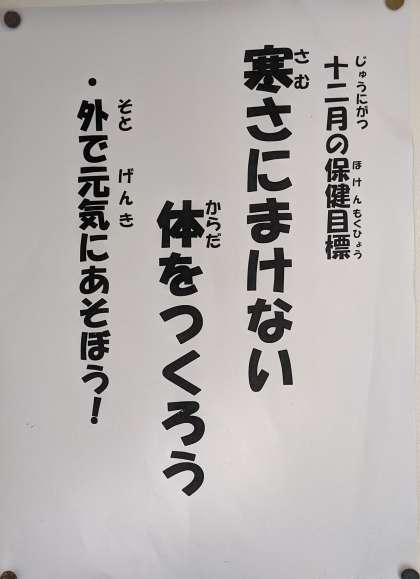 十二月の保健目標
じゅうにがつ ほけんもくひょう
寒さにまけない
さむ
体をつくろう
からだ
・外で元気にあそぼう！
そと げんき